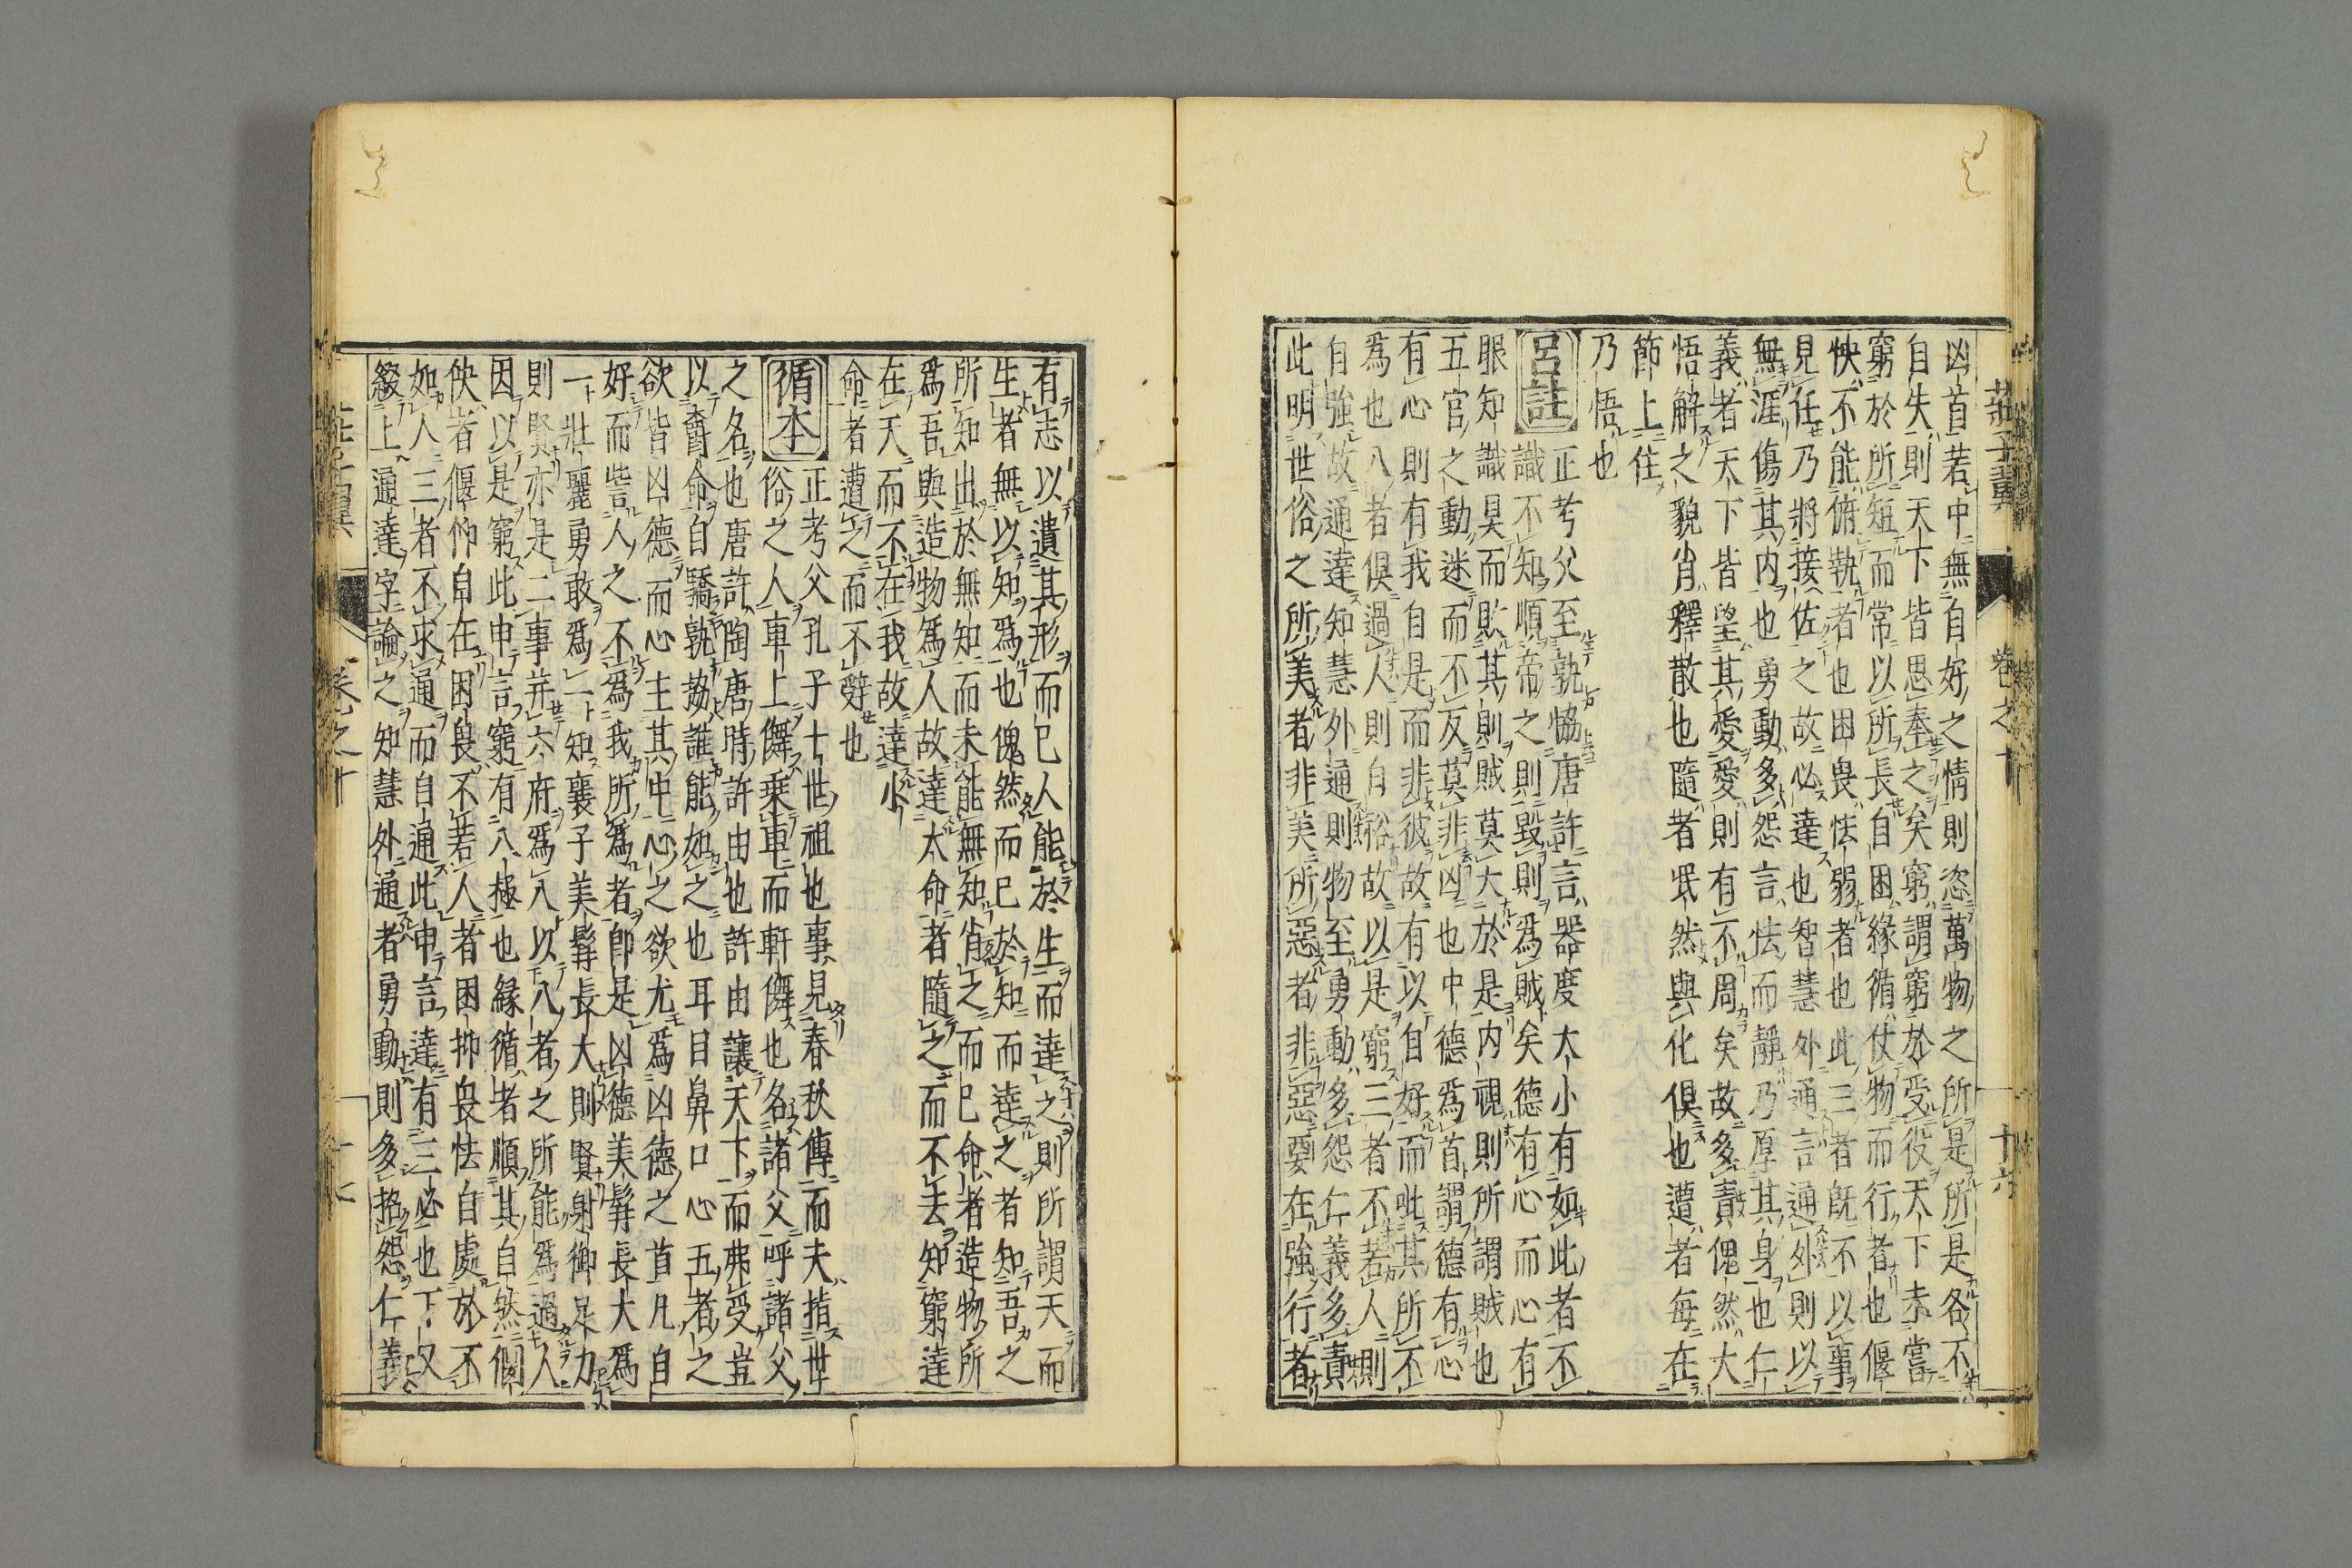 莊子翼 卷之十 十六
凶首若中無自好之情則恣萬物之所是所是各不
自失則天下皆思奉之矣窮謂窮於受役天下未嘗
窮於所短而常以所長自困緣循仗物而行者也偃
怏不能俯執者也困畏怯弱者也此三者旣不以事
見任乃將接佐之故必達也智慧外通言通外則以
無涯傷其内也勇動多怨言怯而靜乃厚其身也仁
義者天下皆望其愛愛則有不周矣故多責傀然大
悟解之貌肖釋散也隨者泯然與化俱也遭者每在
節上住
乃悟也
呂註 正考父至孰恊唐許言器度大小有如此者不
識不知順帝之則毀則爲賊矣德有心而心有
眼知識具而敗其則賊莫大於是内視則所謂賊也
五官之動迷而不反莫非凶也中德爲首謂德有心
有心則有我自是而非彼故有以自好而吡其所不
爲也八者俱過人則自裕故以是窮三者不若人則
自強故通達知慧外通則物至勇動多怨仁義多責
此明世俗之所美者非美所惡者非惡要在強行者
有志以遺其形而已人能於生而達之則所謂天而
生者無以知爲也傀然而已於知而達之者知吾之
所知出於無知而未能無知肖之而已命者造物所
爲吾與造物爲人故達大命者隨之而不去知窮達
在天而不在我故達小
命者遭之而不辭也
循本 正考父孔子十世祖也事見春秋傳而夫指世
俗之人車上儛乗車而軒儛也名諸父呼諸父
之名也唐許陶唐時許由也許由讓天下而弗受豈
以膺命自驕孰協誰能如之也耳目鼻口心五者之
欲皆凶德而心主其中心之欲尤爲凶德之首凡自
好而訾人之不爲我所爲者卽是凶德美髯長大爲
一壯麗勇敢爲一知襄子美髯長大則賢射御足力
則賢亦是二事并六府爲八以八者之所能爲過人
因以是窮此申言窮有八極也緣循者順其自然偃
佒者偃仰自在困畏不若人者困抑畏怯自處於不
如人三者不求通而自通此申言達有三必也下又
綴上通達字論之知慧外通者勇動則多招怨仁義